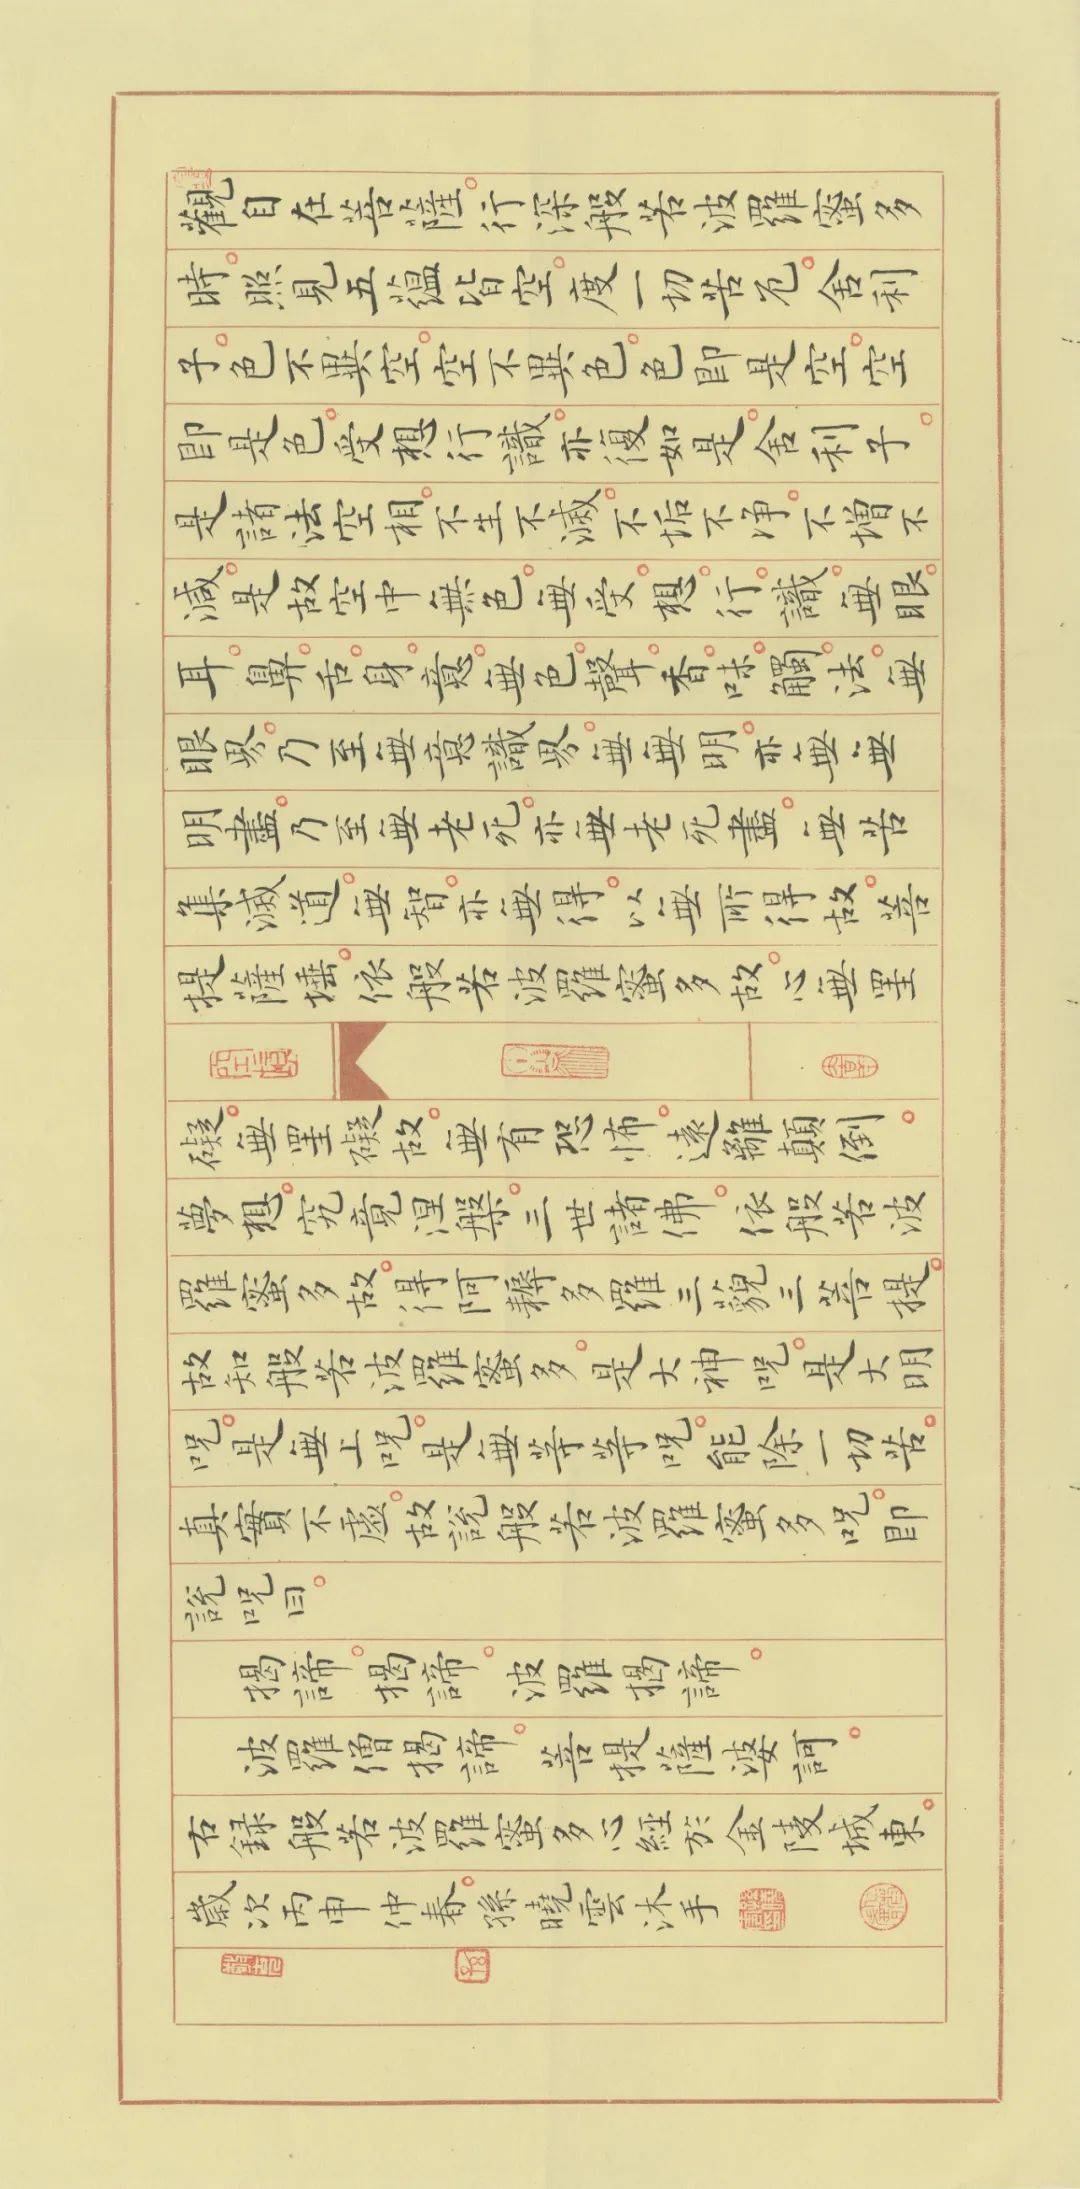 觀自在菩薩行深般若波羅蜜多
時照見五蘊皆空度一切苦厄舍利
子色不異空空不異色色即是空空
即是色受想行識亦復如是舍利子
是諸法空相不生不滅不垢不净不增不
減是故空中無色無受想行識無眼
耳鼻舌身意無色聲香味觸法無
眼界乃至無意識界無無明亦無無
明盡乃至無老死亦無老死盡無苦
集滅道無智亦無得以無所得故菩
提薩埵依般若波羅蜜多故心無罣
礙無罣礙故無有恐怖遠離顛倒
夢想究竟涅槃三世諸佛依般若波
羅蜜多故得阿耨多羅三藐三菩提
故知般若波羅蜜多是大神咒是大明
咒是無上咒是無等等咒能除一切苦
真實不虛故説般若波羅蜜多咒即
説咒曰
揭諦揭諦波羅揭諦
波羅僧揭諦菩提薩婆訶
右録般若波羅蜜多心經於金陵城東
歲次丙申仲春孫曉雲沐手